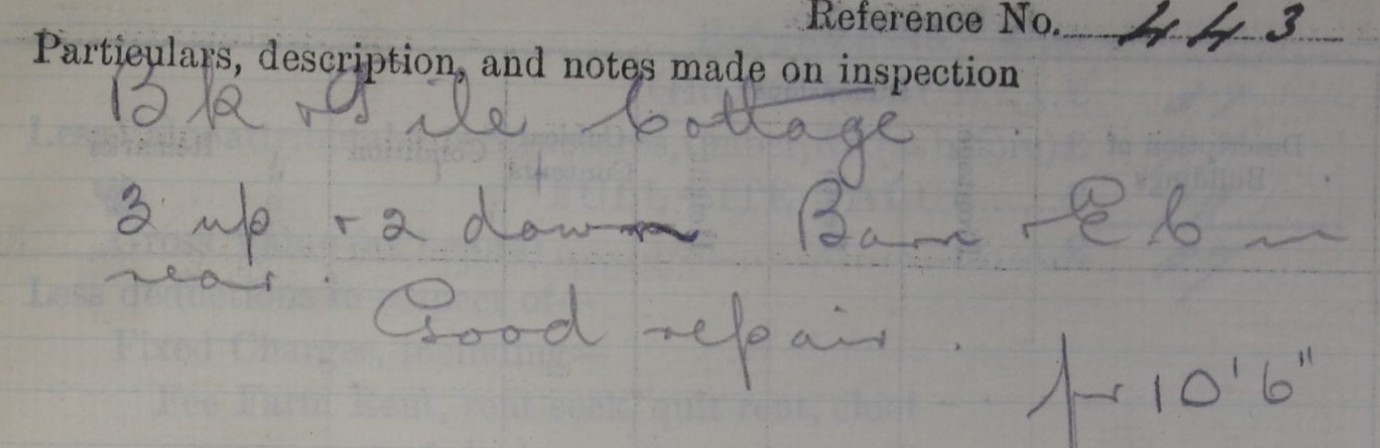 Reference No. 443
Particulars, description, and notes made on inspection
Bk & Tile Cottage
3 up & 2 down Barn & E C in
rear. Good repair.
fr 10'6"